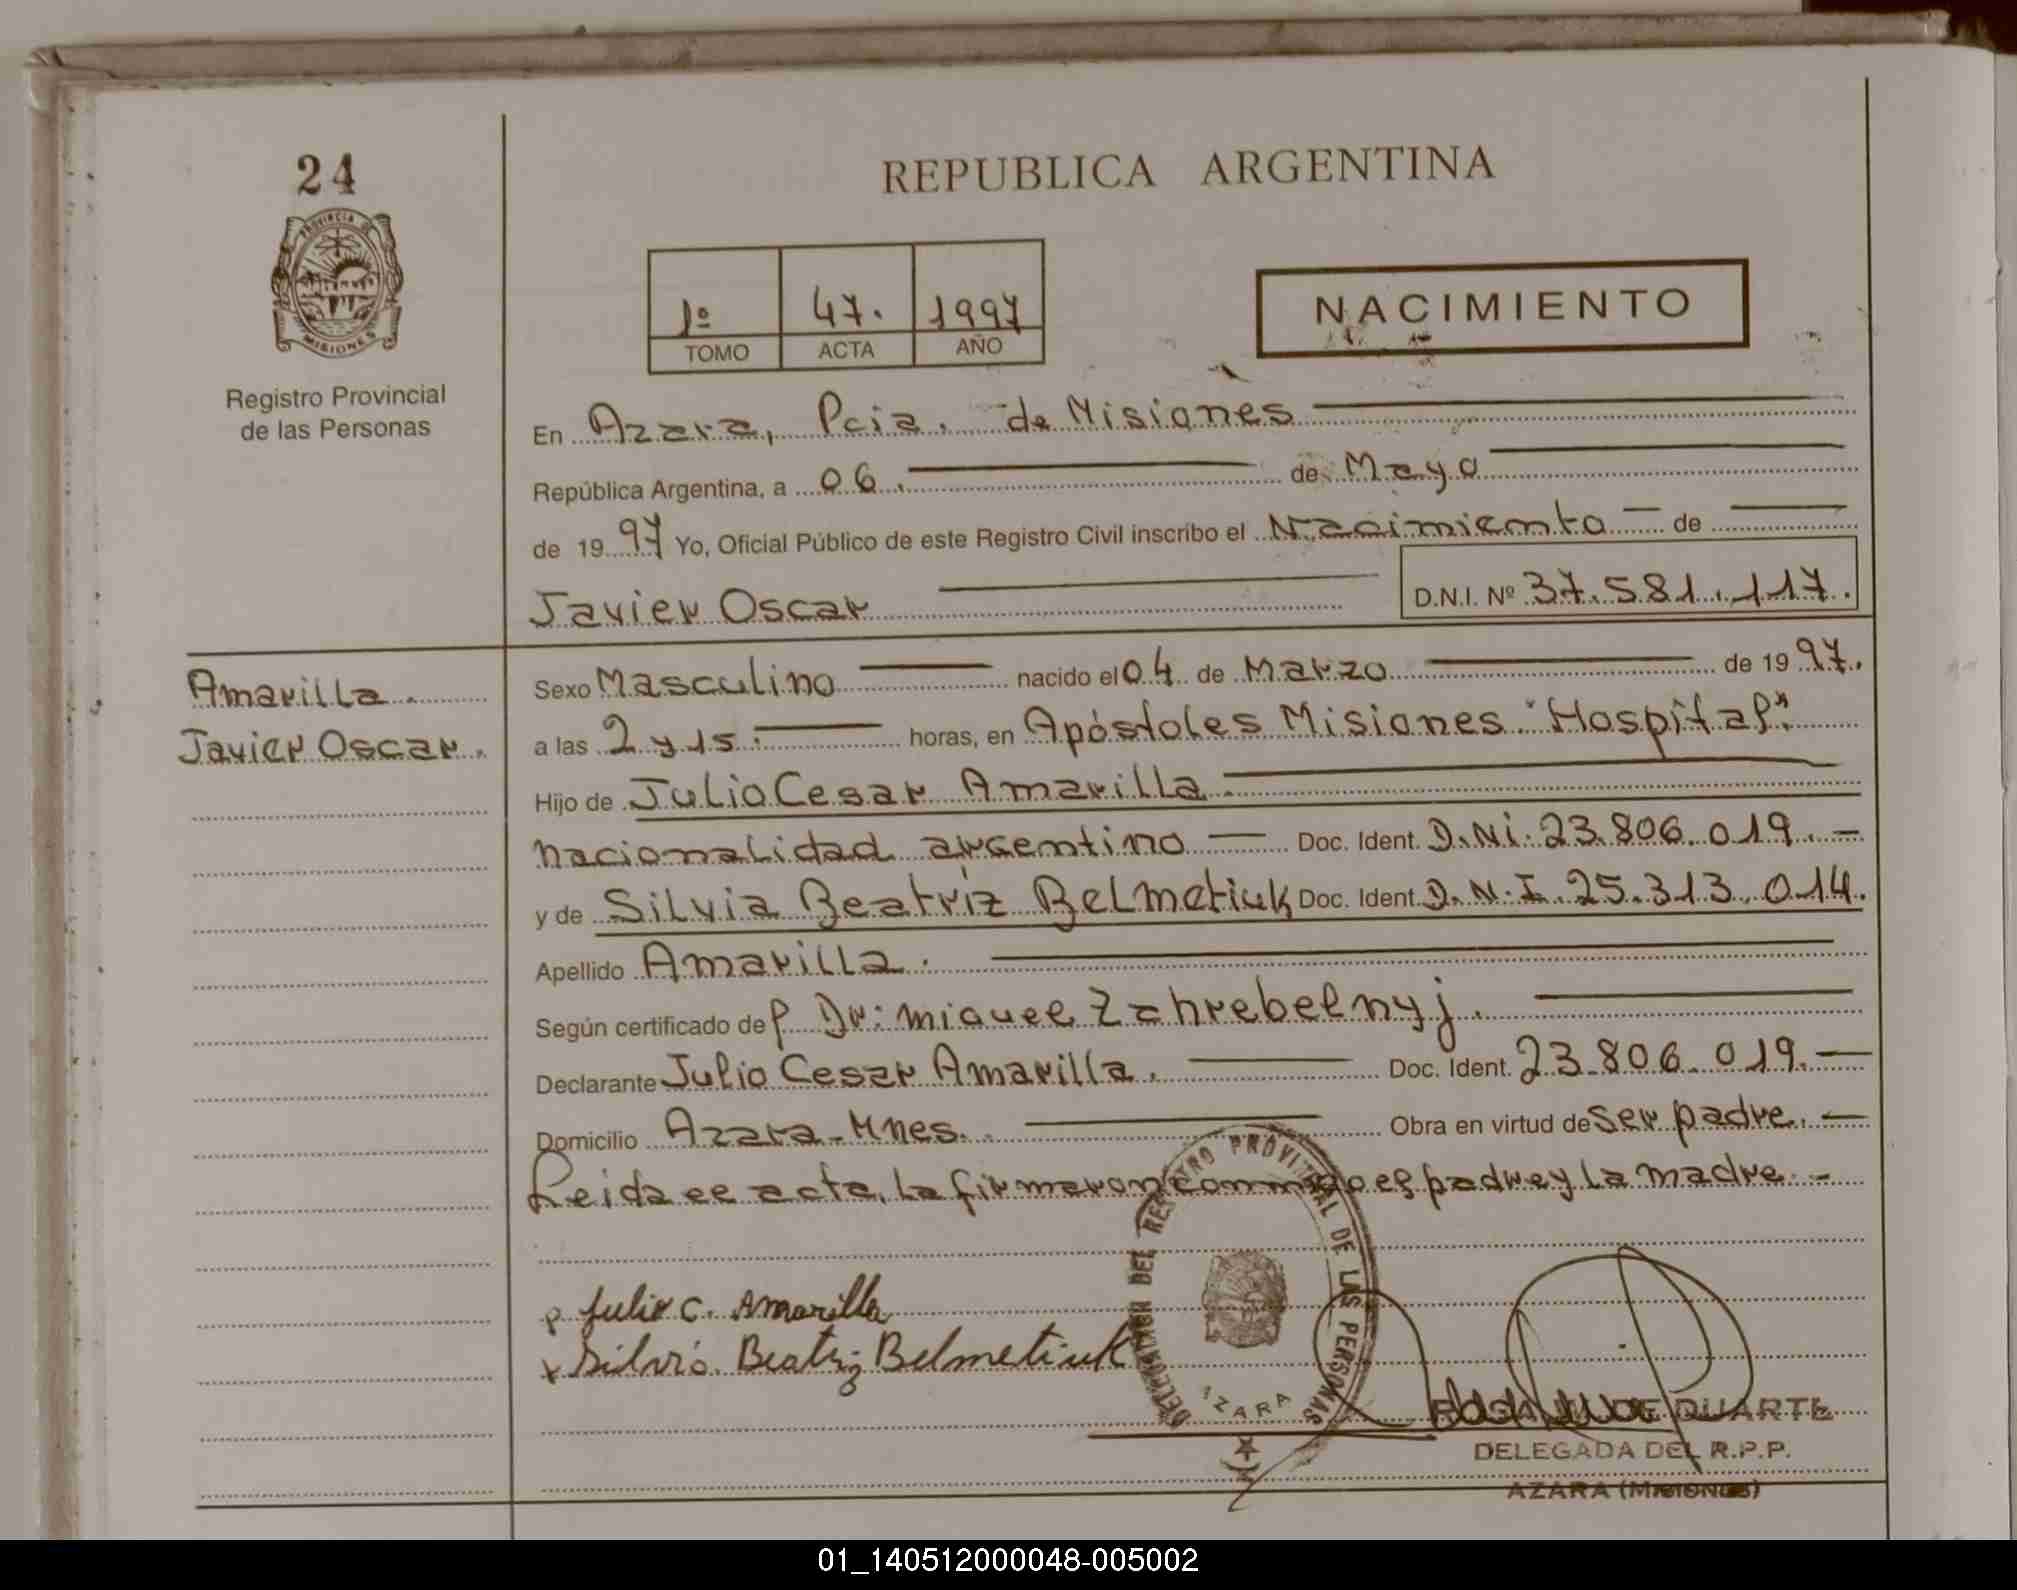 24
PROVINCIA DE
MISIONES
Registro Provincial
de las Personas
REPUBLICA ARGENTINA
1º 47. 1997
TOMO ACTA AÑO
NACIMIENTO
En Azara, Pcia. de Misiones
República Argentina, a 06. de Mayo
de 1997 Yo, Oficial Público de este Registro Civil inscribo el Nacimiento de
Javier Oscar D.N.I. Nº 37.581.117.
Amarilla.
Javier Oscar.
Sexo Masculino nacido el 04 de Marzo de 1997.
a las 2 y 15. horas, en Apóstoles Misiones "Hospital".
Hijo de Julio Cesar Amarilla.
nacionalidad argentino Doc. Ident. D.NI. 23.806.019.-
y de Silvia Beatríz Belmetiuk Doc. Ident. D.N.I. 25.313.014.
Apellido Amarilla.
Según certificado de p. Dr: Miguel Zahrebelnyj.
Declarante Julio Cesar Amarilla. Doc. Ident. 23.806.019.-
Domicilio Azara-Mnes. Obra en virtud de ser padre.-
Leida el acta, la firmaron conmigo el padre y la madre.-
p Julio C. Amarilla
x Silvia Beatriz Belmetiuk
DELEGACION DEL REGISTRO PROVINCIAL DE LAS PERSONAS
AZARA
ROSA DE DUARTE
DELEGADA DEL R.P.P.
AZARA (MISIONES)
01_140512000048-005002